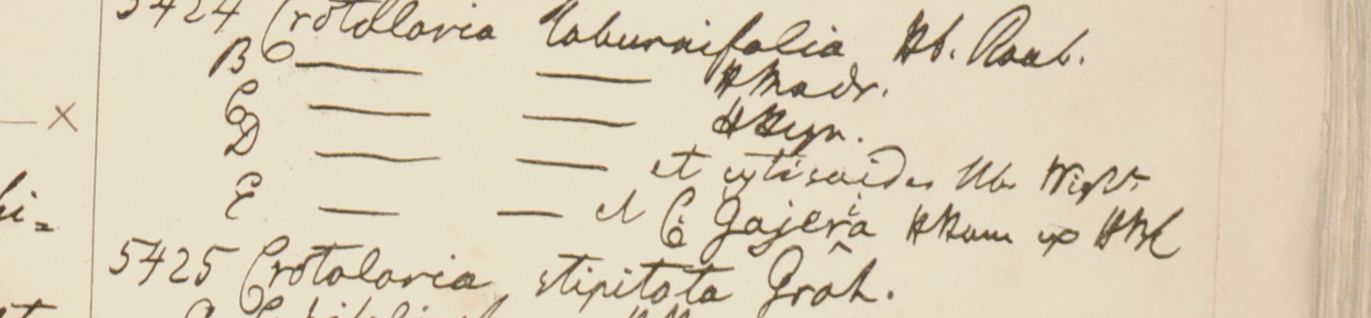 5424 Crotolaria laburnifolia Hb. Roxb.
B — — HMadr.
C — —
D — — et cytisoides Hb Wight
E — — et C Gajera HHam ex HBC
5425 Crotolaria stipitata Grah.